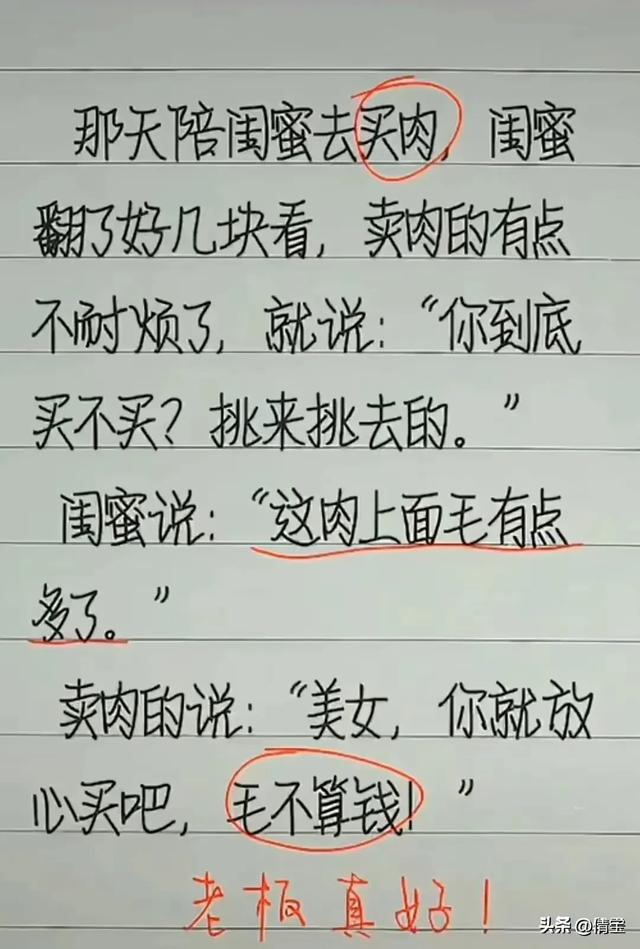 那天陪闺蜜去买肉，闺蜜
翻了好几块看，卖肉的有点
不耐烦了，就说：“你到底
买不买？挑来挑去的。”
闺蜜说：“这肉上面毛有点
多了。”
卖肉的说：“美女，你就放
心买吧，毛不算钱！”
老板真好！
头条 @倩宝